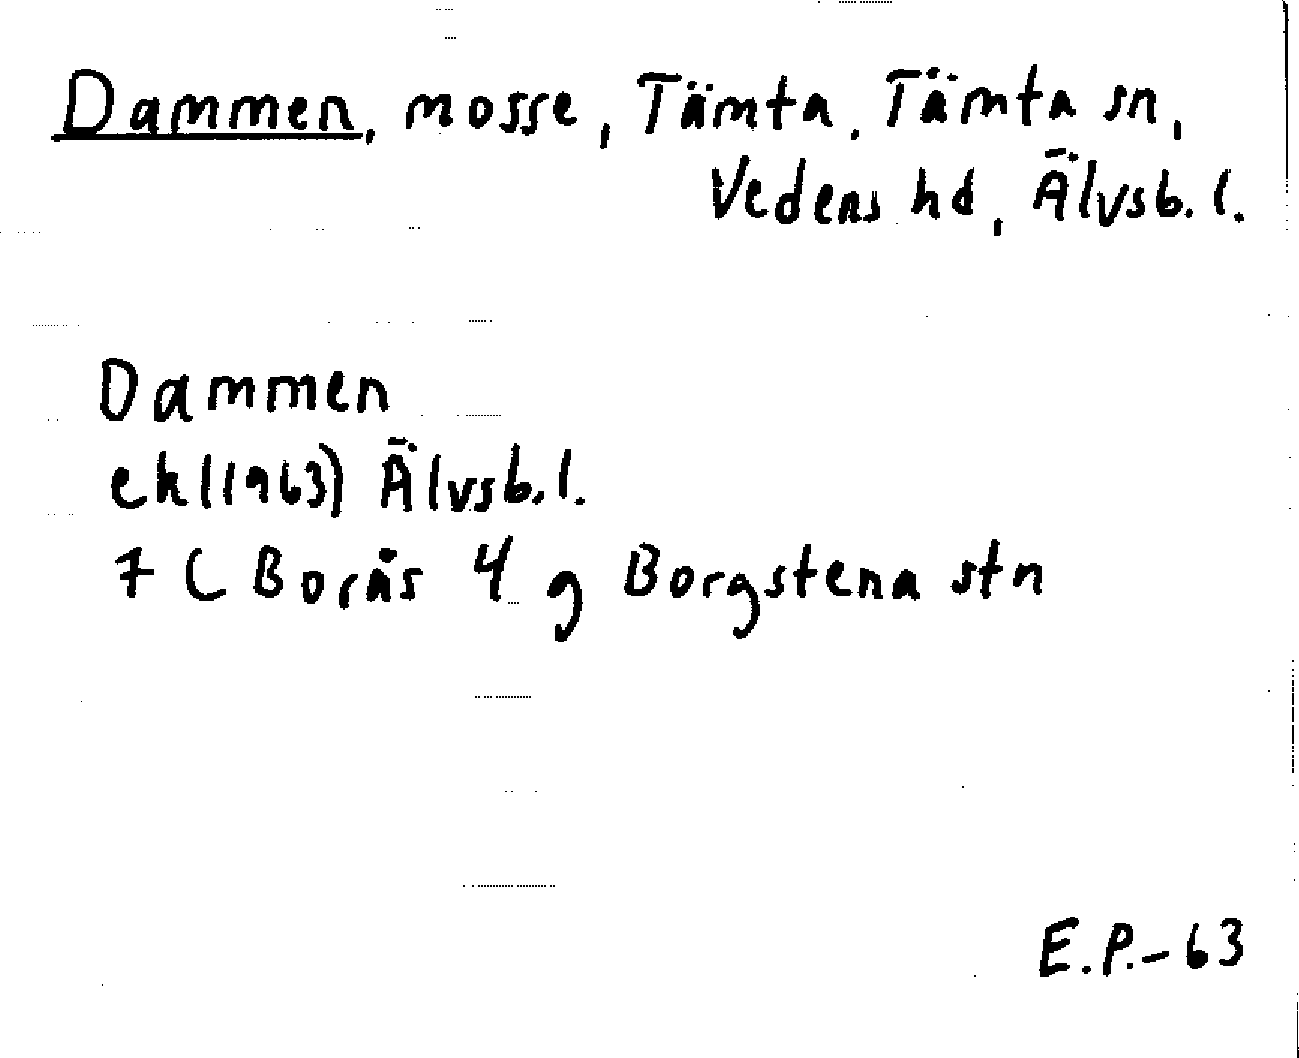 Dammen, mosse, Tämta, Tämta sn,
Vedens hd, Älvsb. l.
Dammen
ek(1963) Älvsb. l.
7 C Borås 4 g Borgstena stn
E.P.-63